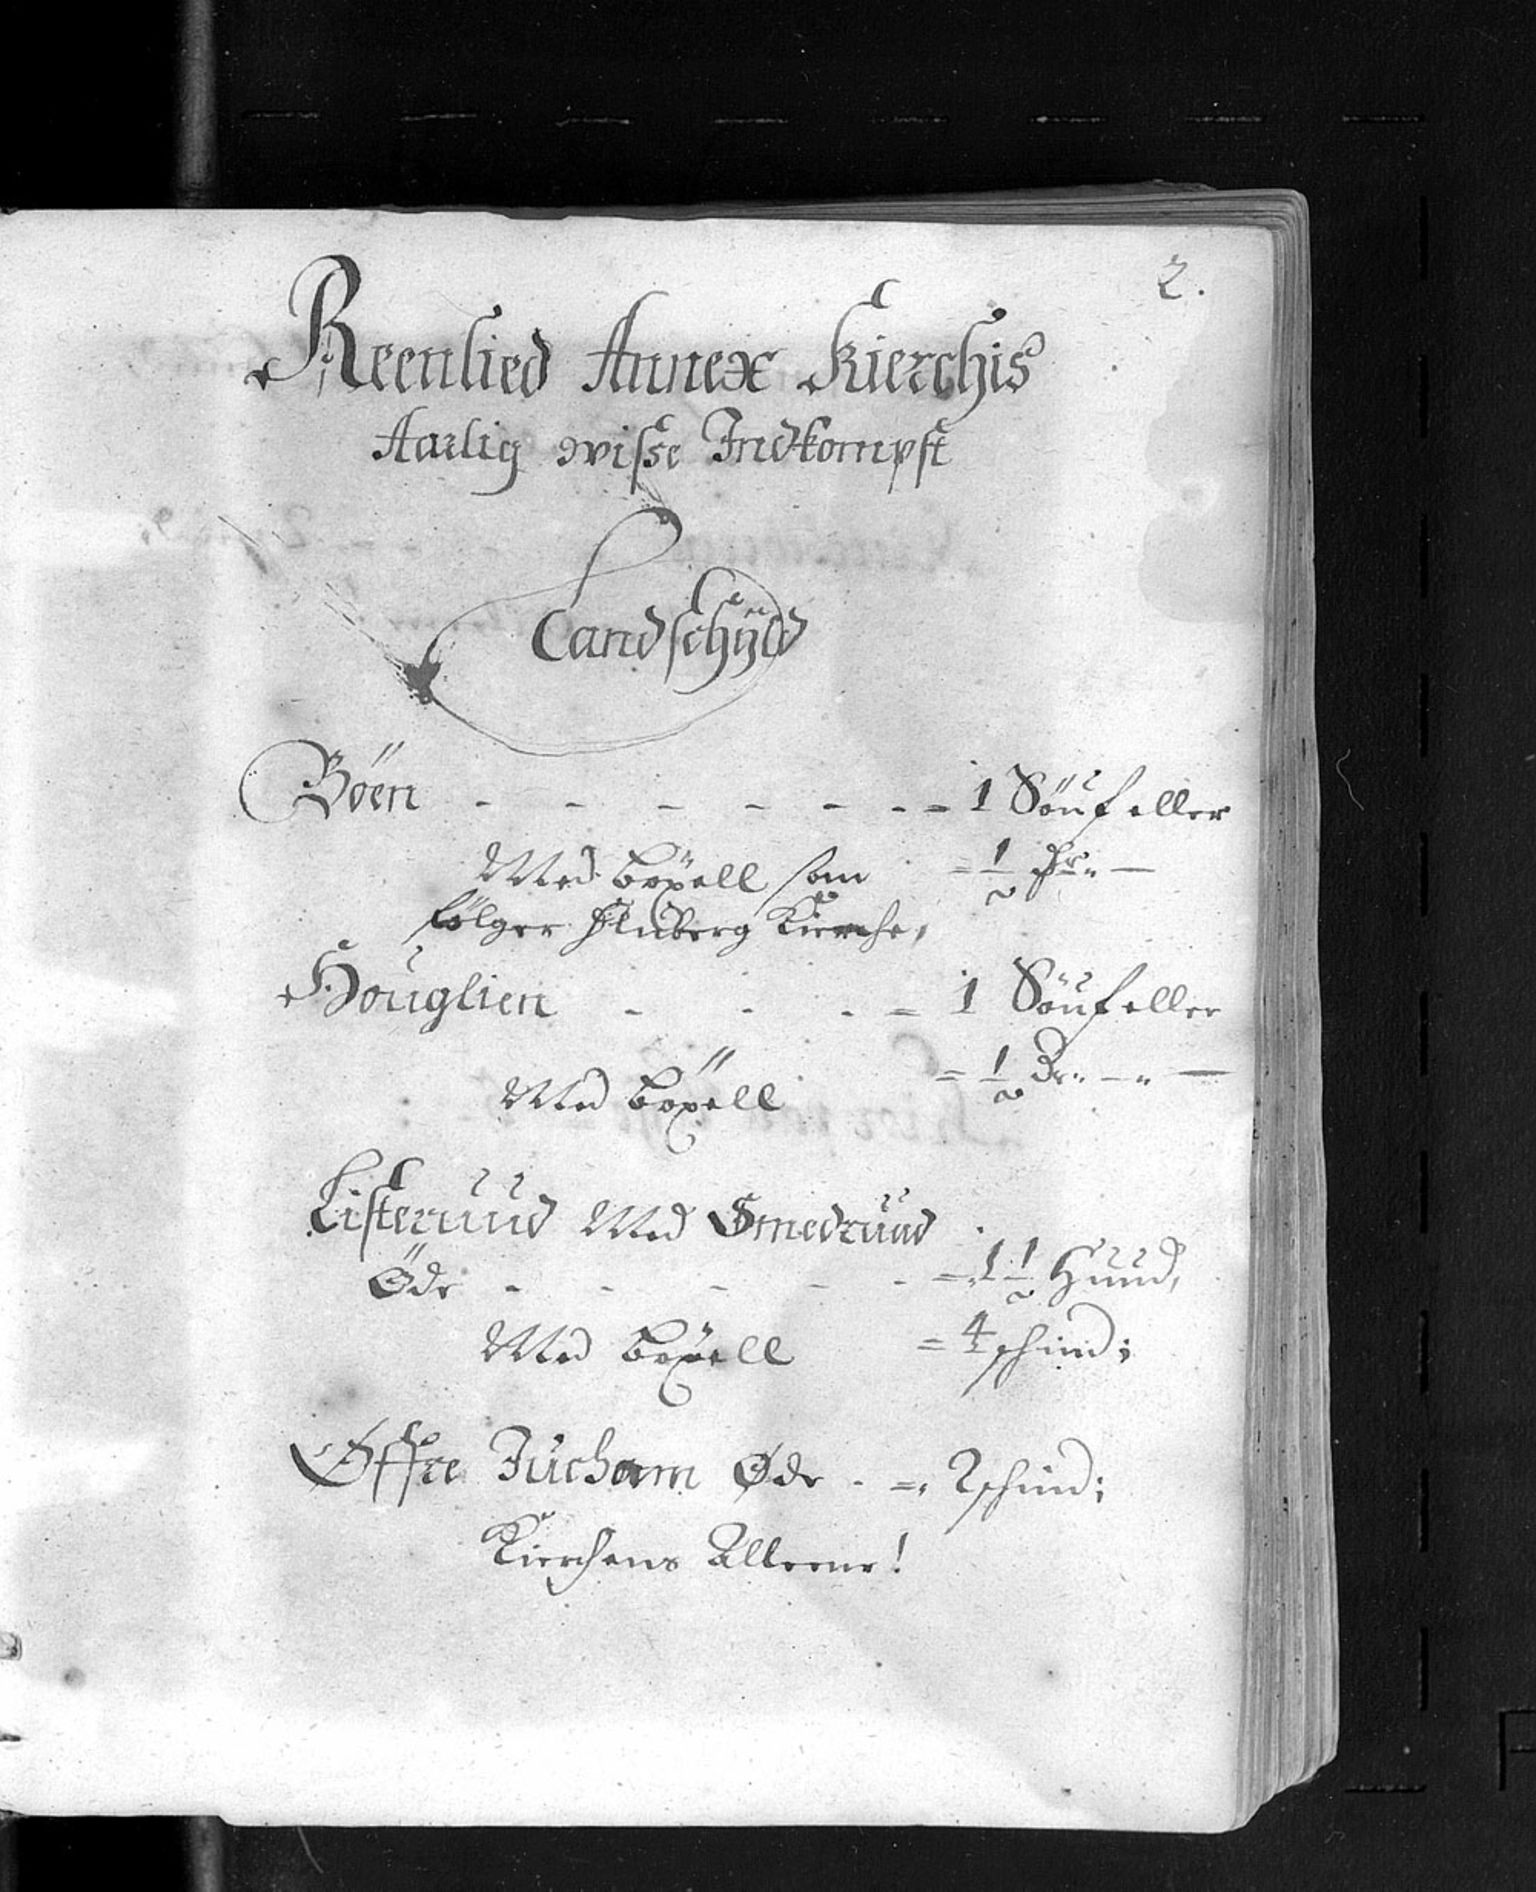 2.
Reenlied Annex Kierchis
Aarlig wisse Indkompst
Landschÿld
Böen - - - - - - = 1 Söuf eller
Med böxell som = 1/2
fölger Fluberg Kierche,
Houglien - - - = 1 Söuf eller
Med böxell = 1/2 Dr.
Listeruud Med Smedruud
Øde - - - - - = 1 1/2 Huud,
Med böxell = 4 schind;
Øffre Jucham Øde - = 2 schind;
Kierchens Alleene!